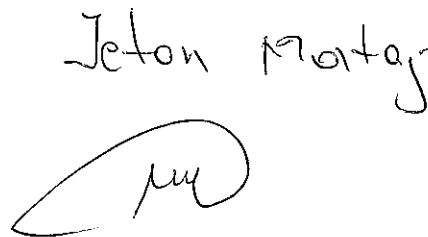 Jeton Mataj